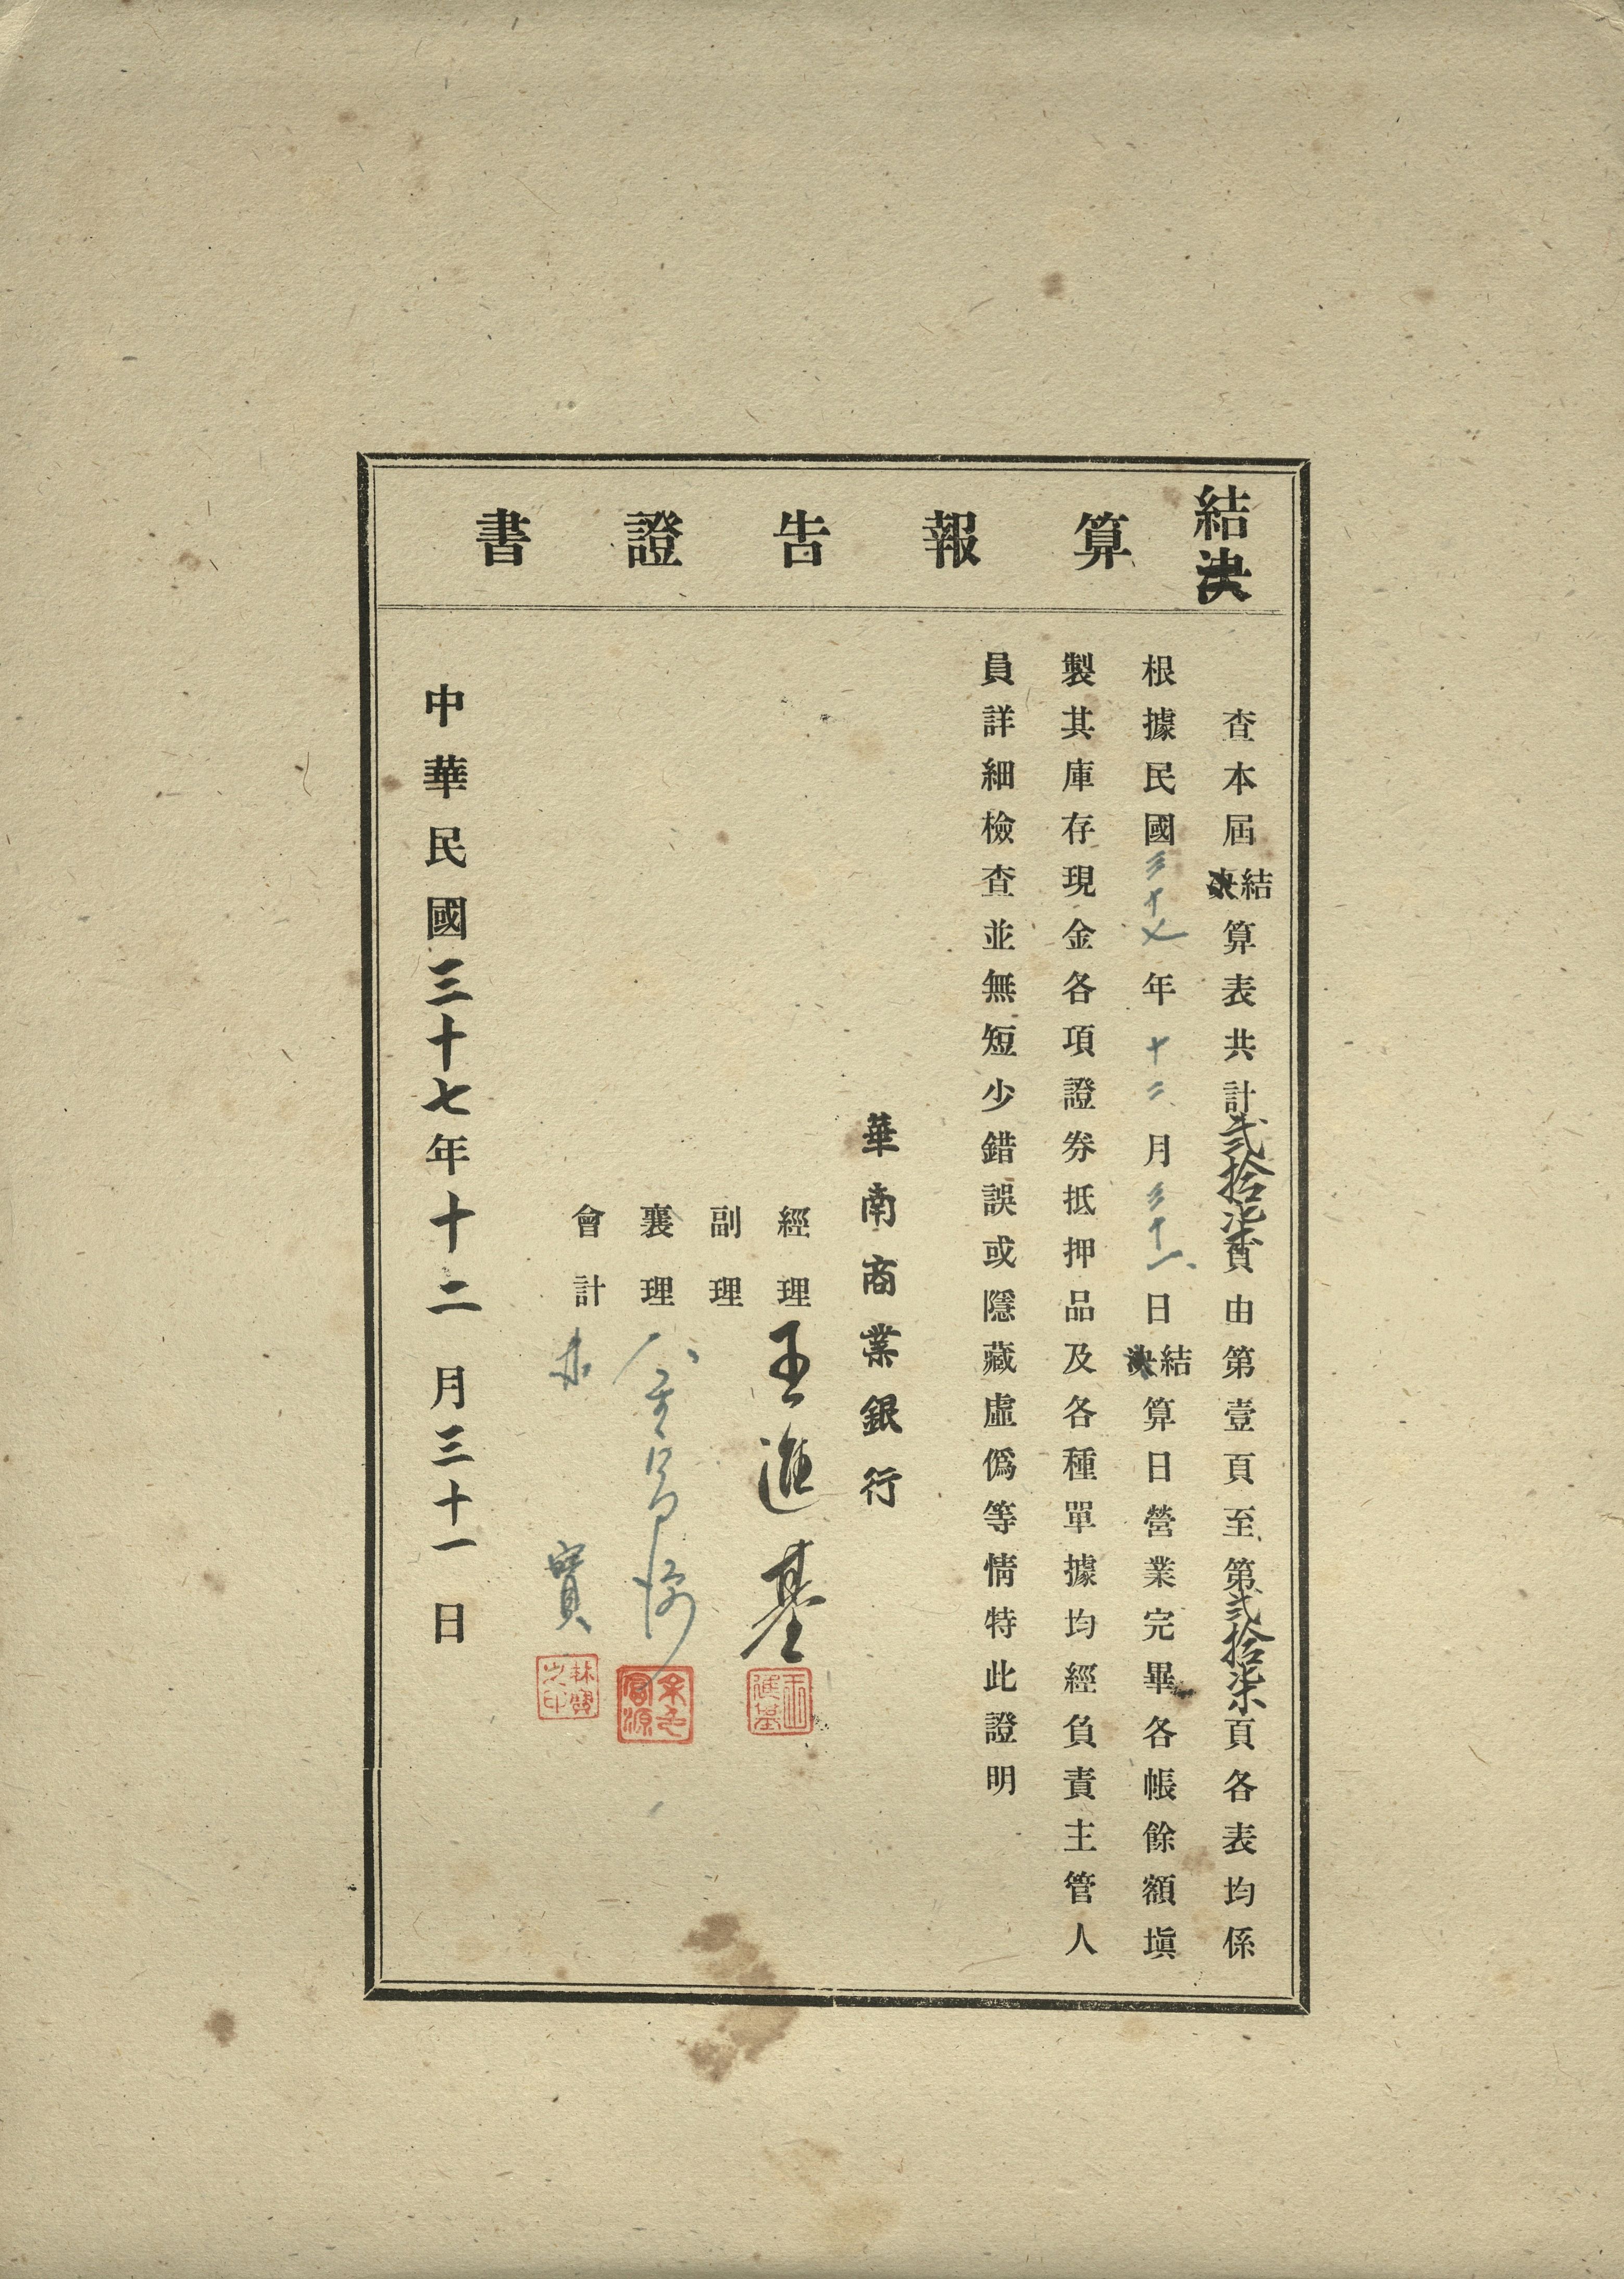 結決算報告證書
查本屆結決算表共計貳拾柒頁由第壹頁至第貳拾柒頁各表均係
根據民國三十七年十二月三十一日結決算日營業完畢各帳餘額塡
製其庫存現金各項證券抵押品及各種單據均經負責主管人
員詳細檢查並無短少錯誤或隱藏虛僞等情特此證明
華南商業銀行
經理 王進基
副理
襄理
會計 林 寶
王進基
林寶之印
中華民國三十七年十二月三十一日